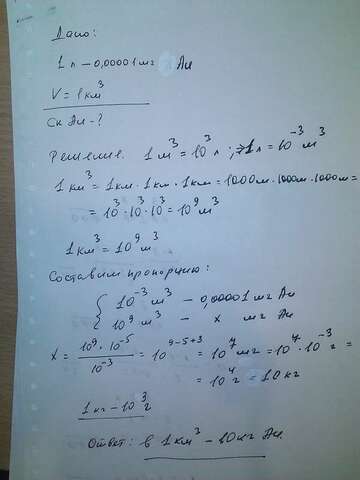 Дано:
1 л – 0,00001 мг Au
V = 1 км³
Ск Au – ?
Решение. 1 м³ = 10³ л ; ⇒ 1 л = 10⁻³ м³
1 км³ = 1 км · 1 км · 1 км = 1000 м · 1000 м · 1000 м =
= 10³ · 10³ · 10³ = 10⁹ м³
1 км³ = 10⁹ м³
Составим пропорцию:
{ 10⁻³ м³ – 0,00001 мг Au
10⁹ м³ – x мг Au
X = 10⁹ · 10⁻⁵ / 10⁻³ = 10⁹⁻⁵⁺³ = 10⁷ мг = 10⁷ · 10⁻³ г =
= 10⁴ г = 10 кг
1 кг – 10³ г
Ответ: в 1 км³ – 10 кг Au.